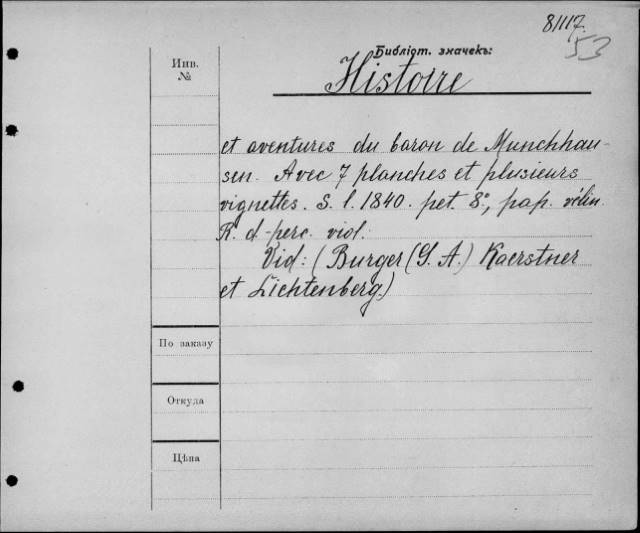 8/117.
53
Библіот. значекъ:
Инв.
№
Histoire
et aventures du baron de Munchhau-
sen. Avec 7 planches et plusieurs
vignettes. S. l. 1840. pet. 8º, pap. vélin
R. d-perc. viol.
Vid: (Burger (G. A.) Kaerstner
et Lichtenberg.)
По заказу
Откуда
Цѣна